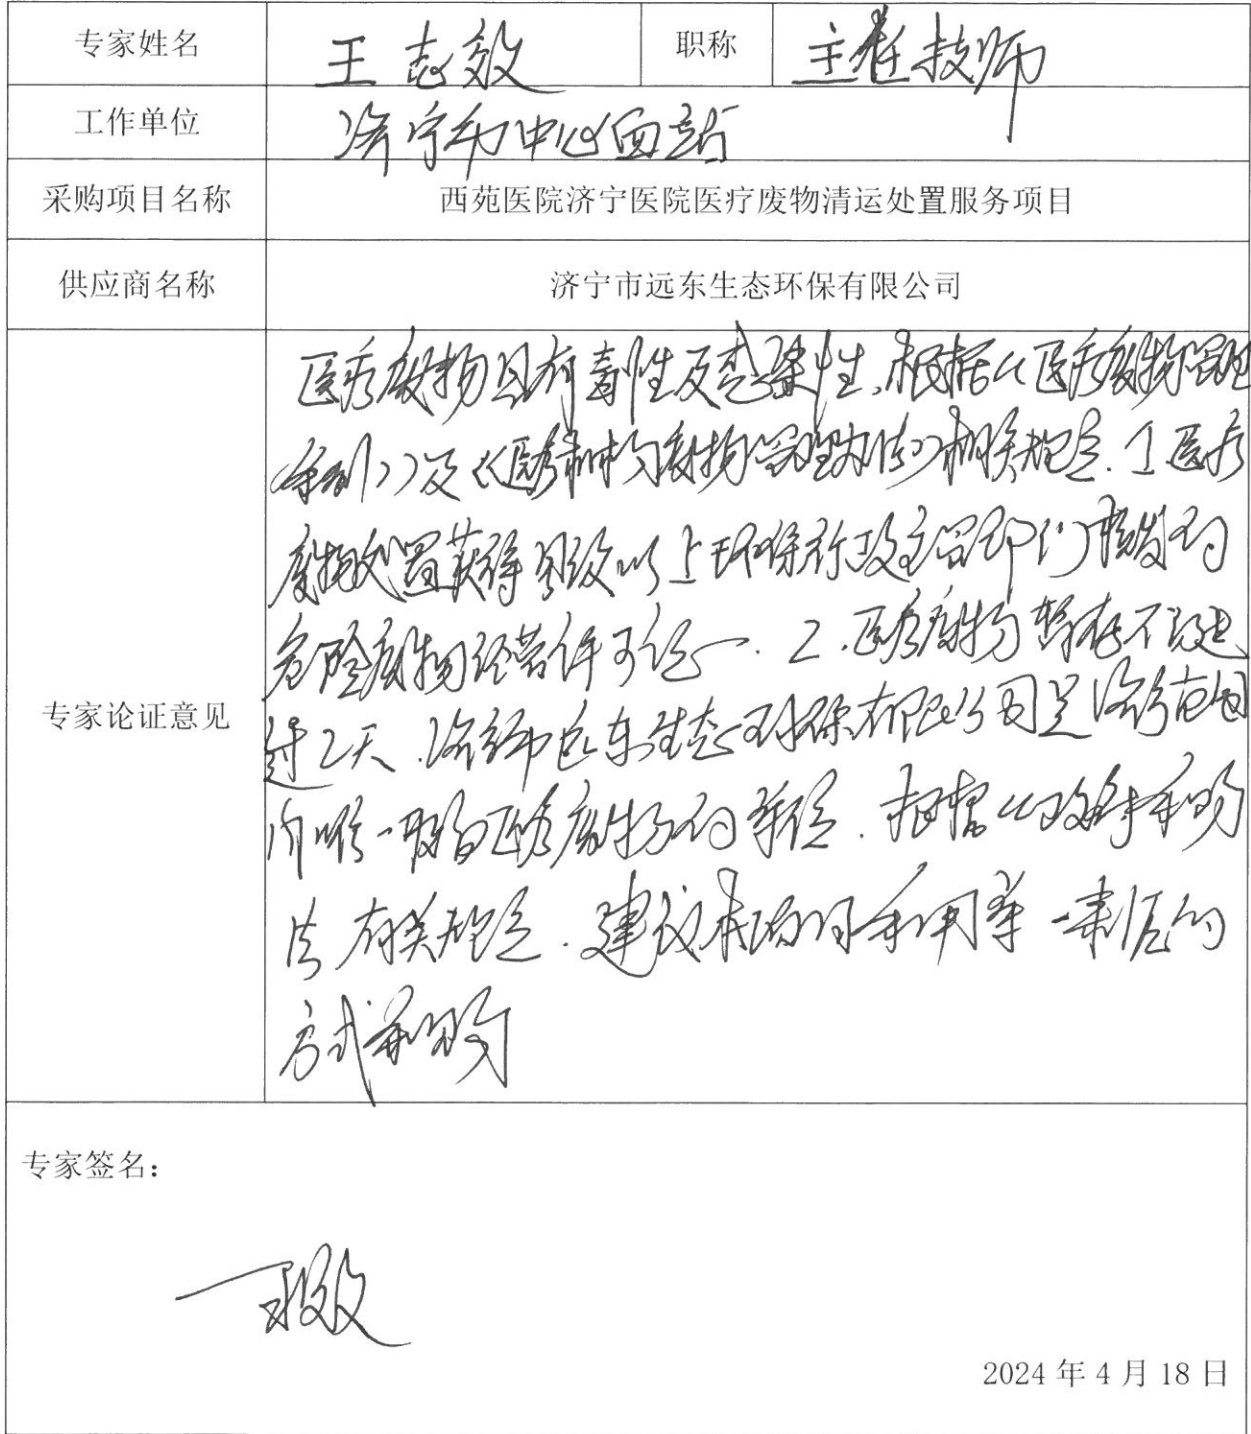 专家姓名 王志效 职称 主任技师
工作单位 济宁市中心血站
采购项目名称 西苑医院济宁医院医疗废物清运处置服务项目
供应商名称 济宁市远东生态环保有限公司
医疗废物具有毒性及感染性，根据《医疗废物管理
条例》及《医疗机构废物管理办法》相关规定.1医疗
废物处置获得县级以上环保行政主管部门核发的
危险废物经营许可证. 2.医疗废物暂存不超
过2天.济宁市远东生态环保有限公司是济宁范围
内唯一 医疗废物的单位.根据《政府采购
法 有关规定.建议本项目采用单一来源的
方式采购
专家论证意见
专家签名：
王志效
2024年4月18日